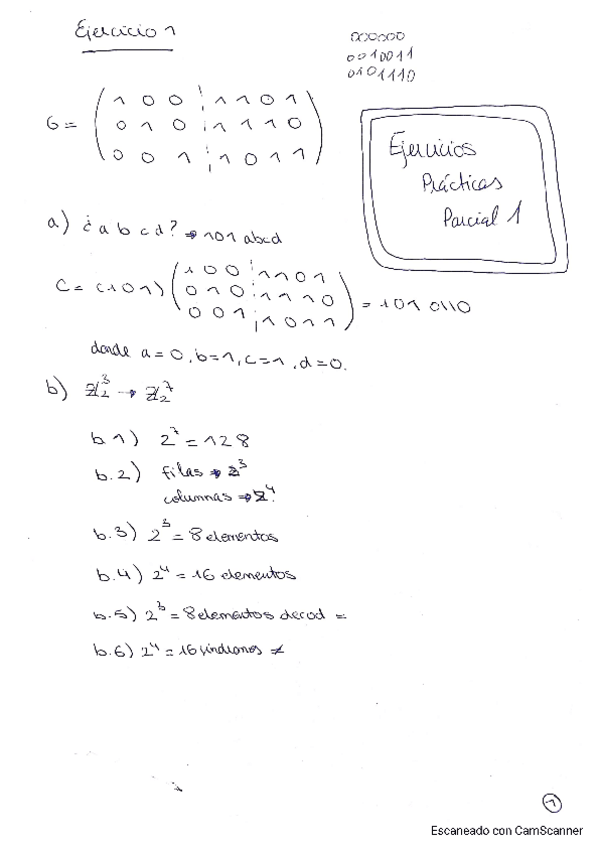 Ejercicio 1
000000
0010011
0101110
G = ( 1 0 0 ¦ 1 1 0 1
0 1 0 ¦ 1 1 1 0
0 0 1 ¦ 1 0 1 1 )
Ejercicios
Prácticas
Parcial 1
a) ¿a b c d? → 101 abcd
C = (101) ( 1 0 0 ¦ 1 1 0 1
0 1 0 ¦ 1 1 1 0
0 0 1 ¦ 1 0 1 1 ) = 101 0110
donde a = 0, b = 1, c = 1, d = 0.
b) ℤ₂³ → ℤ₂⁷
b.1) 2⁷ = 128
b.2) filas → 2³
columnas → 2⁴
b.3) 2³ = 8 elementos
b.4) 2⁴ = 16 elementos
b.5) 2³ = 8 elementos decod =
b.6) 2⁴ = 16 ≠
1
Escaneado con CamScanner